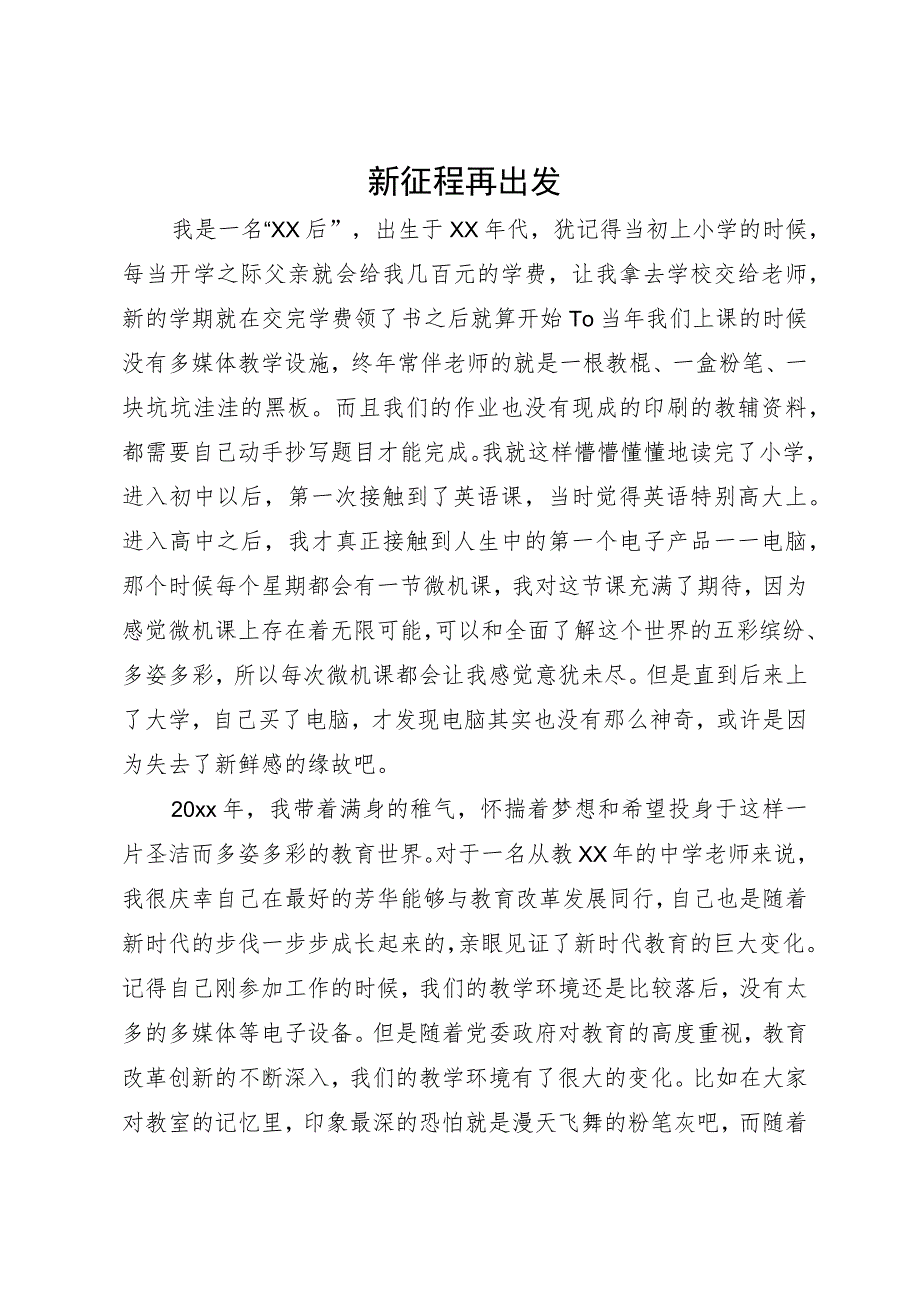 新征程再出发
我是一名“XX 后”，出生于 XX 年代，犹记得当初上小学的时候，
每当开学之际父亲就会给我几百元的学费，让我拿去学校交给老师，
新的学期就在交完学费领了书之后就算开始 To 当年我们上课的时候
没有多媒体教学设施，终年常伴老师的就是一根教棍、一盒粉笔、一
块坑坑洼洼的黑板。而且我们的作业也没有现成的印刷的教辅资料，
都需要自己动手抄写题目才能完成。我就这样懵懵懂懂地读完了小学，
进入初中以后，第一次接触到了英语课，当时觉得英语特别高大上。
进入高中之后，我才真正接触到人生中的第一个电子产品一一电脑，
那个时候每个星期都会有一节微机课，我对这节课充满了期待，因为
感觉微机课上存在着无限可能，可以和全面了解这个世界的五彩缤纷、
多姿多彩，所以每次微机课都会让我感觉意犹未尽。但是直到后来上
了大学，自己买了电脑，才发现电脑其实也没有那么神奇，或许是因
为失去了新鲜感的缘故吧。
20xx 年，我带着满身的稚气，怀揣着梦想和希望投身于这样一
片圣洁而多姿多彩的教育世界。对于一名从教 XX 年的中学老师来说，
我很庆幸自己在最好的芳华能够与教育改革发展同行，自己也是随着
新时代的步伐一步步成长起来的，亲眼见证了新时代教育的巨大变化。
记得自己刚参加工作的时候，我们的教学环境还是比较落后，没有太
多的多媒体等电子设备。但是随着党委政府对教育的高度重视，教育
改革创新的不断深入，我们的教学环境有了很大的变化。比如在大家
对教室的记忆里，印象最深的恐怕就是漫天飞舞的粉笔灰吧，而随着